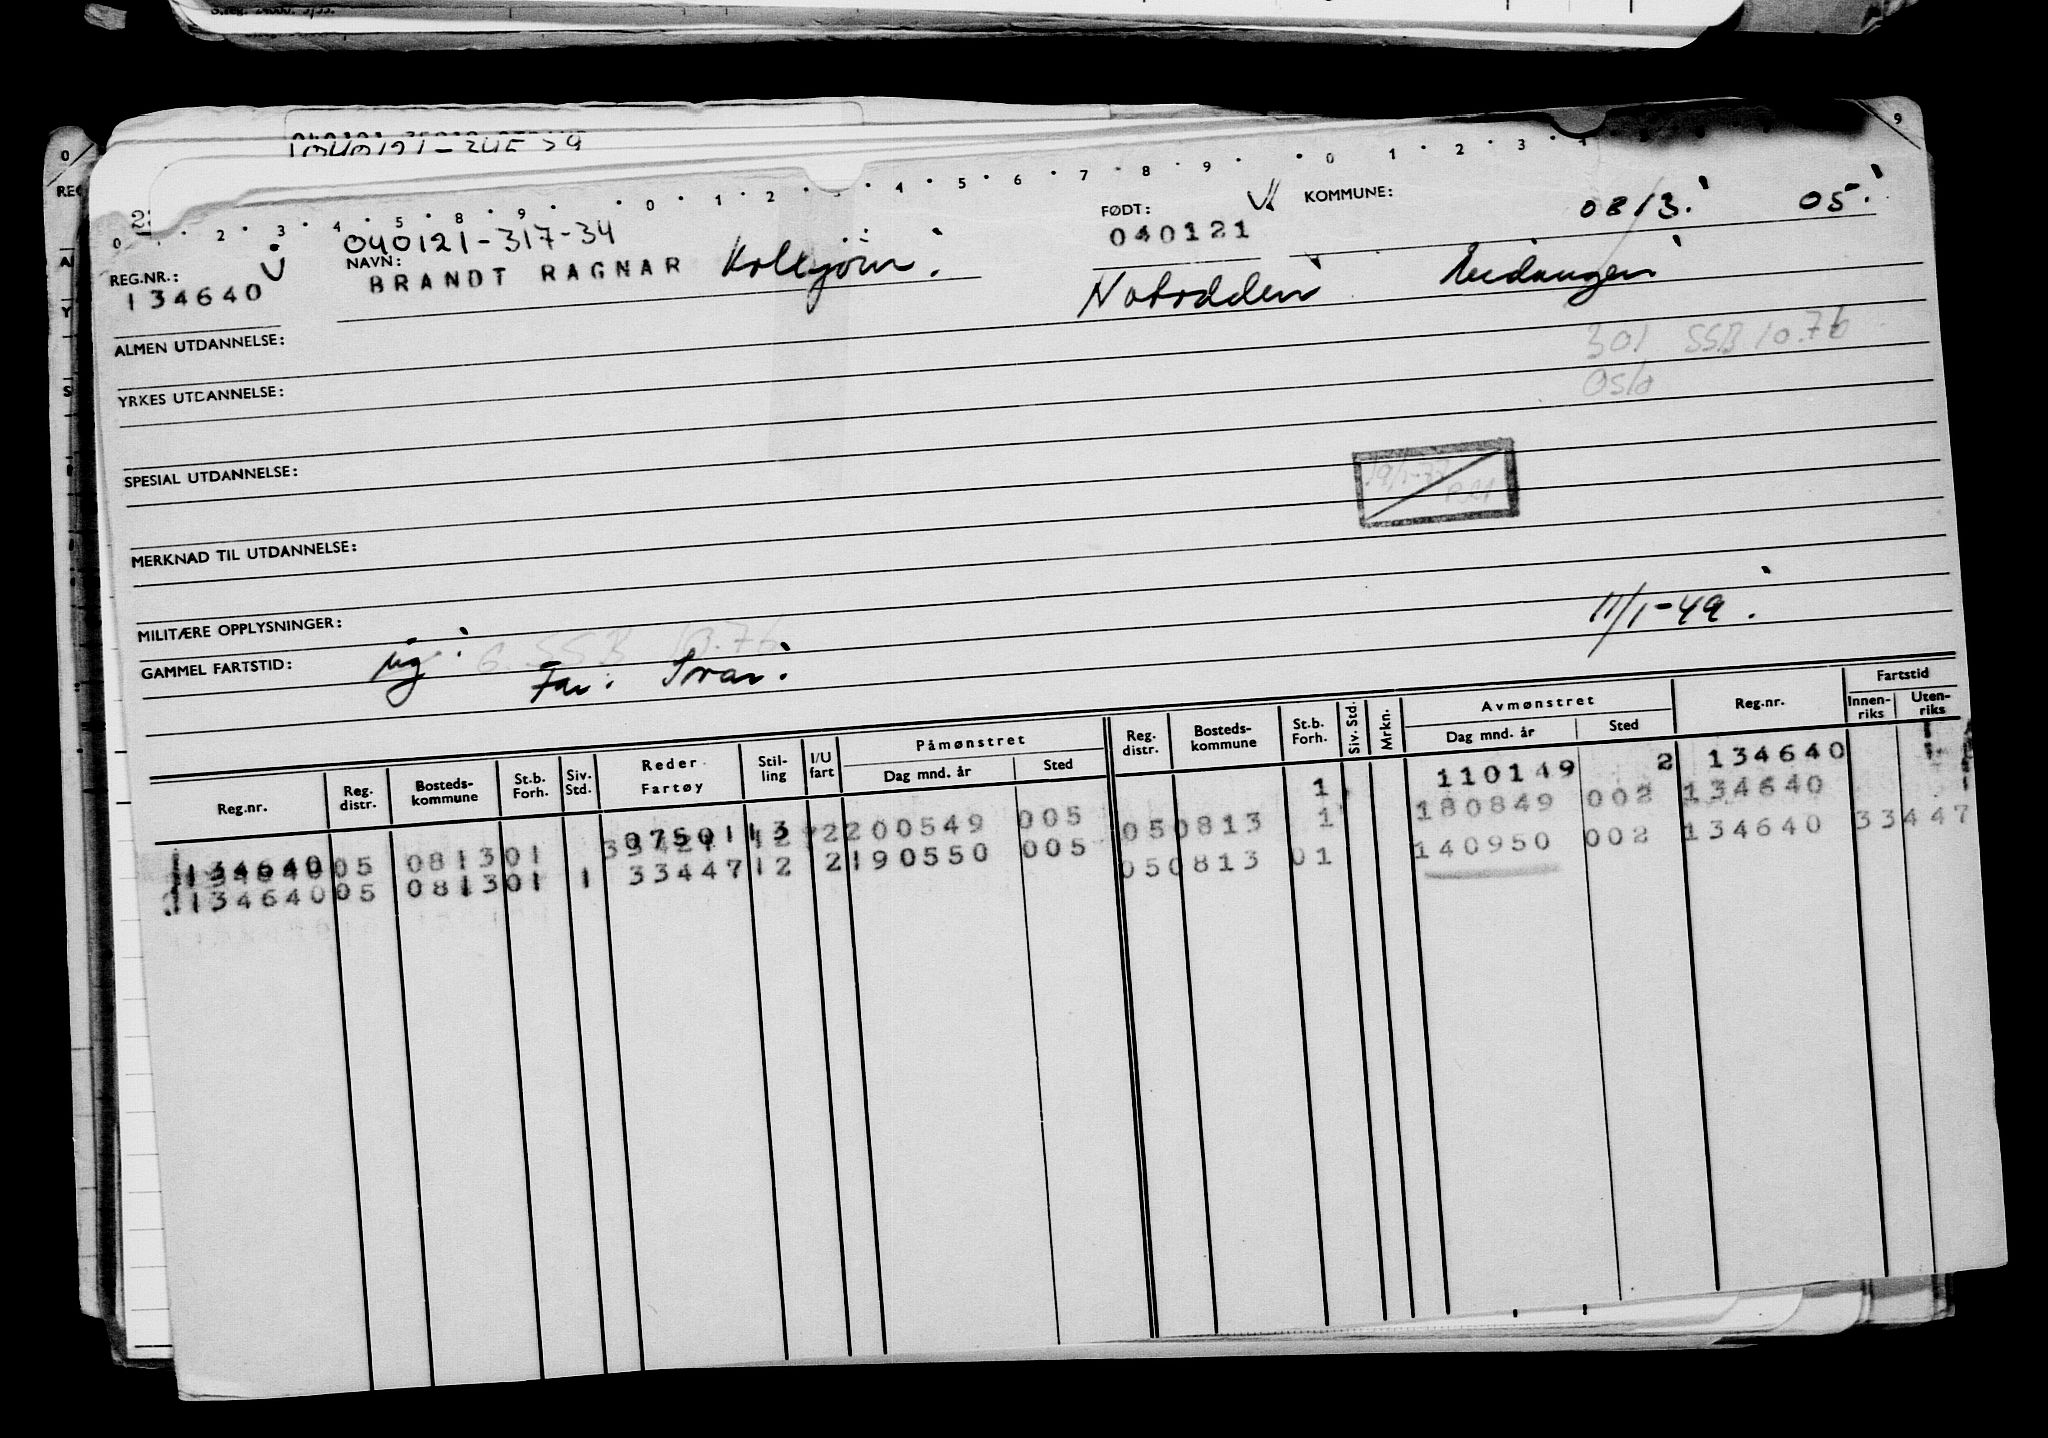 0 1 2 3 4 5 6 7 8 9 0 1 2 3
9
KOMMUNE: 0813. 05.
FØDT: 040121
040121-317-34
REG.NR.: 134640
NAVN: BRANDT RAGNAR
Notodden Eidanger
ALMEN UTDANNELSE:
301 SSB 10.76
Oslo
YRKES UTDANNELSE:
SPESIAL UTDANNELSE:
MERKNAD TIL UTDANNELSE:
MILITÆRE OPPLYSNINGER:
11/1-49.
GAMMEL FARTSTID:
SSB 10.76
Far: Ivar.
Reg.nr. Reg. distr. Bosteds- kommune St.b. Forh. Siv. Std. Reder Fartøy Stil- ling I/U fart Påmønstret Dag mnd. år Sted Reg. distr. Bosteds- kommune St.b. Forh. Siv. Std. Mrkn. Avmønstret Dag mnd. år Sted Reg.nr. Fartstid Innen- riks Uten- riks
07501 13 1 110149 2 134640
134640 05 0813 01 2 200549 005 05 0813 1 180849 002 134640
134640 05 0813 01 1 33447 12 2 190550 005 05 0813 01 140950 002 134640 33447